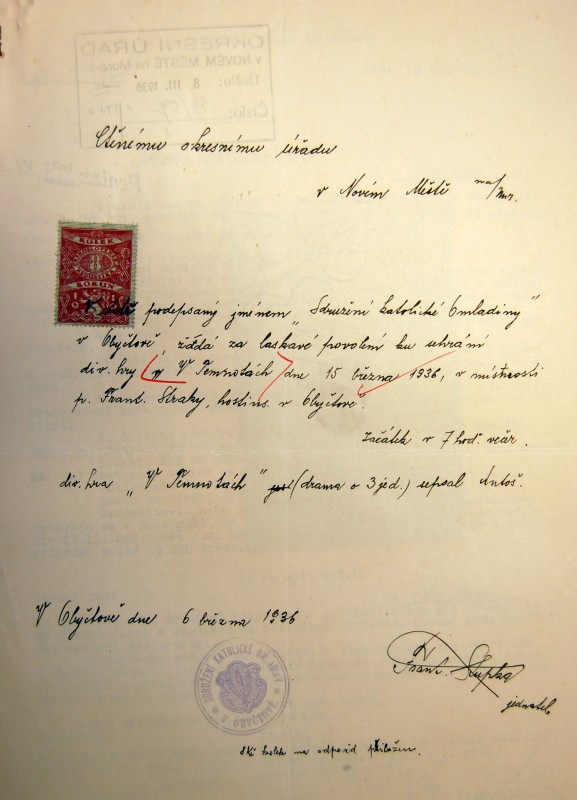 OKRESNÍ ÚŘAD
v NOVÉM MĚSTĚ na Moravě
Došlo: 8. III. 1936
Číslo:
Ctěnému okresnímu úřadu
v Novém Městě na/Mor.
KOLEK
8
KORUN
níže podepsaný jménem „Sdružení katolické Omladiny"
v Obyčtově žádá za laskavé povolení ku sehrání
div. hry „V Temnotách dne 15 března 1936, v místnosti
p. Frant. Straky, hostins. v Obyčtově.
Začátek v 7 hod. večer.
div. hra „V Temnotách" (drama o 3 jed.) sepsal Antoš.
V Obyčtově dne 6 března 1936
SDRUŽENÍ KATOLICKÉ OMLADINY
V OBYČTOVĚ
Frant. Stupka
jednatel
8 Kč kolek na odpověď přiložen.